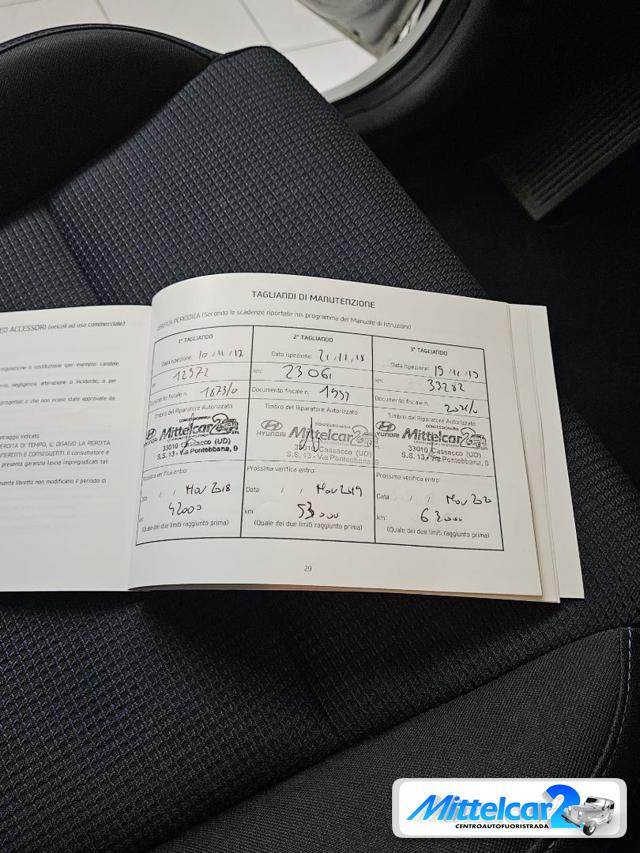 ED ACCESSORI (veicoli ad uso commerciale)
regolazione o sostituzione (per esempio: candele
negligenza, alterazione o incidente, o per
progettati o che non siano state approvate da
indicato.
PERDITA DI TEMPO, IL DISAGIO LA PERDITA
INERENTI E CONSEGUENTI. Il consumatore è
presente garanzia lascia impregiudicati tali
libretto non modificano il periodo di
TAGLIANDI DI MANUTENZIONE
VERIFICA PERIODICA (Secondo le scadenze riportate nel programma del Manuale di Istruzioni)
1° TAGLIANDO
Data ispezione: 10/11/17
km: 12972
Documento fiscale n. 1873/0
Timbro del Riparatore Autorizzato
HYUNDAI Mittelcar2
33010 Cassacco (UD)
S.S. 13 - Via Pontebbana, 9
Prossima verifica entro:
Data / / Nov 2018
km: 42000
(Quale dei due limiti raggiunto prima)
2° TAGLIANDO
Data ispezione: 21/11/18
km: 23061
Documento fiscale n.
Timbro del Riparatore Autorizzato
CONCESSIONARIA
HYUNDAI Mittelcar2
33010 Cassacco (UD)
S.S. 13 - Via Pontebbana, 9
Prossima verifica entro:
Data / / Nov 2019
km: 53000
(Quale dei due limiti raggiunto prima)
3° TAGLIANDO
Data ispezione: 19/11/19
km: 33282
Documento fiscale n.
Timbro del Riparatore Autorizzato
CONCESSIONARIA
HYUNDAI Mittelcar2
33010 Cassacco (UD)
S.S. 13 - Via Pontebbana, 9
Prossima verifica entro:
Data / / Nov 2020
km: 63000
(Quale dei due limiti raggiunto prima)
29
Mittelcar2
CENTROAUTOFUORISTRADA